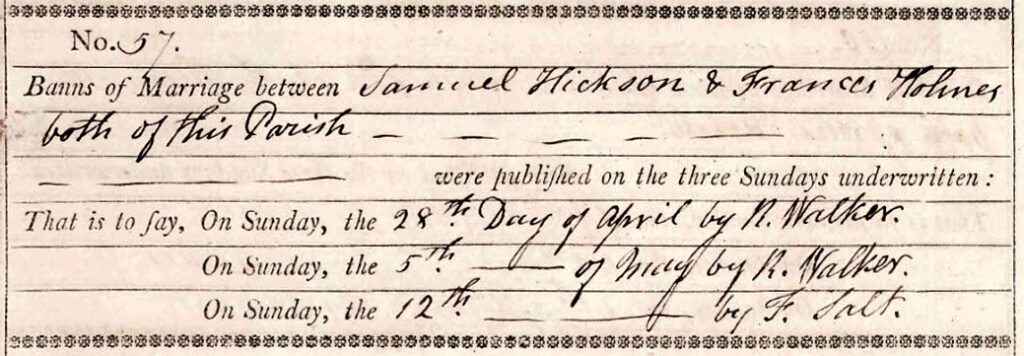 No. 57.
Banns of Marriage between Samuel Hickson & Frances Holmes
both of this Parish — — — —
— — — were publiſhed on the three Sundays underwritten :
That is to ſay, On Sunday, the 28th Day of April by R. Walker.
On Sunday, the 5th — of May by R. Walker.
On Sunday, the 12th — — by F. Salt.